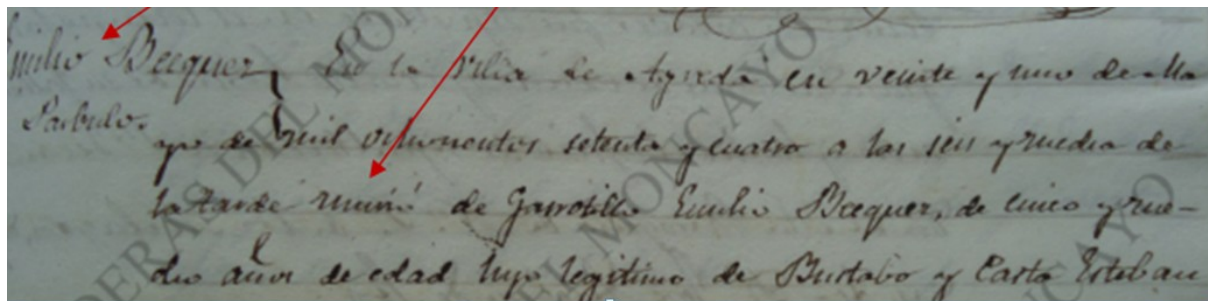 Emilio Becquer, En la Villa de Agreda en veinte y uno de Ma
Parbulo.
yo de mil ochocientos setenta y cuatro a las seis y media de
la tarde murió de Garrotillo Emilio Becquer, de cinco y me-
dio años de edad hijo legitimo de Bustabo y Casta Esteban
DERAS DEL MONCAYO
DEL MONCAYO